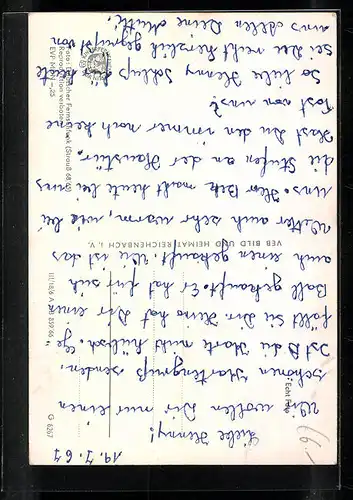 19.7.67
Liebe Henny!
Wir wollen Dir nur einen
schönen Kartengruß senden.
Ist die Karte nicht hübsch. Ge-
fällt sie Dir. Heino hat Dir einen
Ball gekauft. Er hat für sich
auch einen gekauft. Wie ist das
Wetter auch sehr warm, wie bei
uns. Herr Bik macht heute bei uns
die Stufen an der Haustür.
Hast Du denn immer noch keine
Post von uns?
So liebe Henny Schluß für heute
sei Du recht herzlich gegrüßt von
uns allen Deine Mutti.
VEB BILD UND HEIMAT REICHENBACH i. V.
Echt Foto
III/18/6 A
G 6267